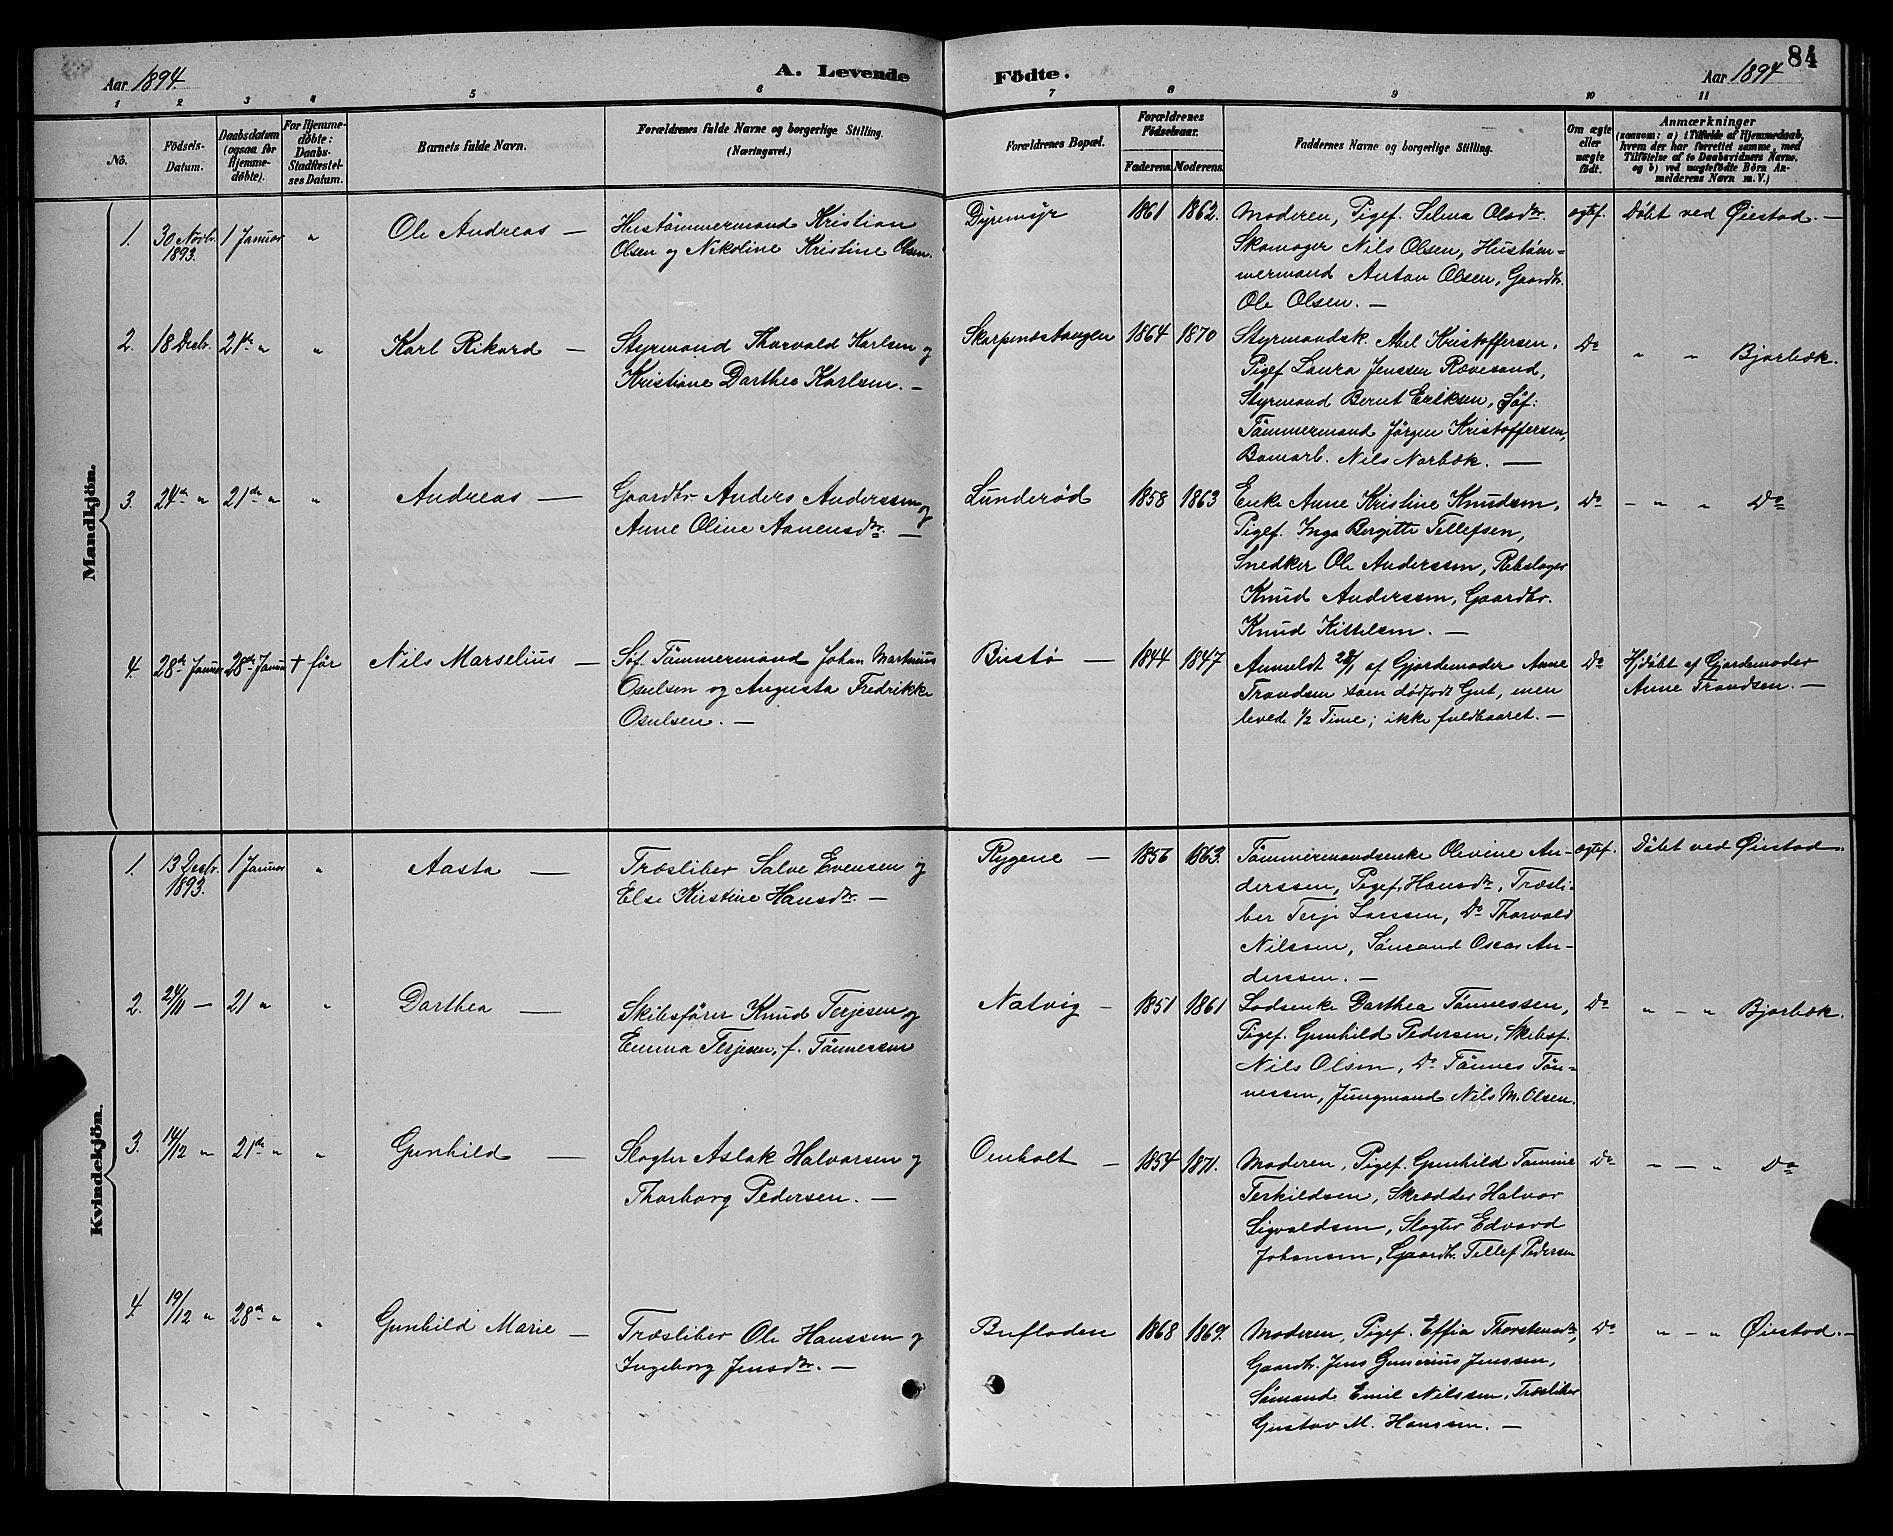 84
Aar 1894. A. Levende Födte. Aar 1894
1 2 3 4 5 6 7 8 9 10 11
No. Födsels-Datum. Daabsdatum (ogsaa for Hjemmedöbte). For Hjemmedöbte: Daabs-Stadfæstelses Datum. Barnets fulde Navn. Forældrenes fulde Navne og borgerlige Stilling. (Næringsvei.) Forældrenes Bopæl. Forældrenes Födselsaar. Faderens. Moderens. Faddernes Navne og borgerlige Stilling. Om ægte eller uægte födt. Anmærkninger
(saasom: a) i Tilfælde af Hjemmedaab,
hvem der har forrettet samme, med
Tilföielse af to Daabsvidners Navne,
og b) ved uægtefödte Börn An-
melderens Navn m. V.)
Mandkjön.
1. 30 Novbr. 1893. 1 Januar " Ole Andreas —
Hustömmermand Kristian
Olsen og Nikoline Kristine Olsen.
Dyremyr 1861 1862.
Moderen, Pigef. Selma Olsdtr.
Skomager Nils Olsen, Hustöm-
mermand Anton Olsen, Gaardbr.
Ole Olsen. —
ægtef. Döbt ved Öiestad. —
2. 18 Decbr. 21de " " Karl Rikard —
Styrmand Thorvald Karlsen og
Kristiane Darthea Karlsen. —
Skarpenæstangen 1864 1870
Styrmandsk. Abel Kristoffersen,
Pigef. Laura Jenssen Rævesand,
Styrmand Bernt Eriksen, Söf:
Tömmermand Jörgen Kristoffersen,
Bomarb. Nils Narbæk. —
Do " " Bjorbæk.
3. 24de " 21de " " Andreas —
Gaardbr. Anders Anderssen og
Anne Oline Aanensdtr. —
Lunderöd 1858 1863
Enke Anne Kristine Knudsen,
Pigef. Inga Birgitte Tellefsen,
Snedker Ole Anderssen, Rebslager
Knud Anderssen, Gaardbr.
Knud Kittelsen. —
Do - " " Do
4. 28de Januar 28de Januar † för Nils Marselius —
Söf. Tömmermand Johan Martinius
Osulsen og Augusta Fredrikke
Osulsen. —
Bustö — 1844 1847
Anmeldt 28/1 af Gjordemoder Anne
Trondsen som dödfödt Gut, men
levede 1/2 Time; ikke fuldbaaret. —
Do Hjdöbt af Gjordemoder
Anne Trondsen. —
Kvindekjön.
1. 13 Decbr. 1893. 1 Januar " Aasta —
Træsliber Salve Evensen og
Else Kirstine Hansdtr. —
Rygene — 1856 1863.
Tömmermandsenke Olevine An-
derssen, Pigef. Hansdtr., Træsli-
ber Terje Larssen, Do Thorvald
Nilssen, Sömand Oscar An-
derssen. —
ægtef. Döbt ved Öiestad.
2. 24/11 — 21 " " Darthea —
Skibsförer Knud Terjesen og
Emma Terjesen, f. Tönnessen
Natvig — 1851 1861
Lodsenke Darthea Tönnessen,
Pigef. Gunhild Pedersen, Skibsf.
Nils Olsen, Do Tönnes Tön-
nessen, Jungmand Nils M. Olsen.
Do " — " Bjorbæk.
3. 14/12 " 21de " " Gunhild —
Slagter Aslak Halvorsen og
Thorborg Pedersen. —
Omholt — 1854 1871.
Moderen, Pigef. Gunhild Tomine
Terkildsen, Skrædder Halvor
Sigvaldsen, Slagter Edvard
Johansen, Gaardbr. Tellef Pedersen
Do " — " Do
4. 19/12 " 28de " " Gunhild Marie —
Træsliber Ole Hanssen og
Ingeborg Jensdtr. —
Bufladen 1868 1869.
Moderen, Pigef. Effia Thorstensdtr,
Gaardbr. Jens Gunerius Jenssen,
Sömand Emil Nilssen, Træsliber
Gustav M. Hanssen. —
Do " — " Öiestad. —